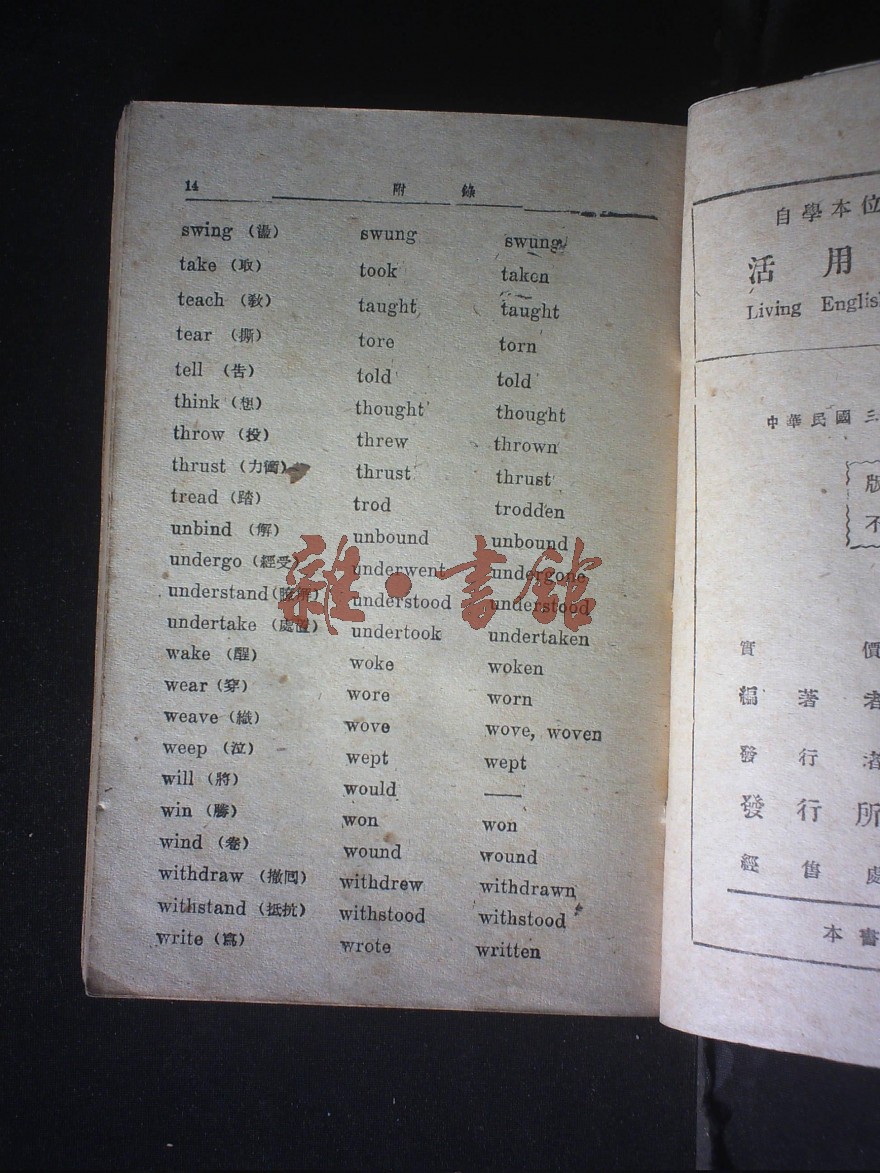 14 附 錄
swing (盪) swung swung
take (取) took taken
teach (敎) taught taught
tear (撕) tore torn
tell (告) told told
think (想) thought thought
throw (投) threw thrown
thrust (力衝) thrust thrust
tread (踏) trod trodden
unbind (解) unbound unbound
undergo (經受) underwent undergone
understand (瞭解) understood understood
undertake (處置) undertook undertaken
wake (醒) woke woken
wear (穿) wore worn
weave (織) wove wove, woven
weep (泣) wept wept
will (將) would ——
win (勝) won won
wind (卷) wound wound
withdraw (撤囘) withdrew withdrawn
withstand (抵抗) withstood withstood
write (寫) wrote written
雜·書館
自學本位
活用
Living English
中華民國三
版
不
實價
編著者
發行者
發行所
經售處
本書